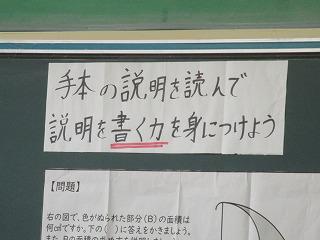 手本の説明を読んで
説明を書く力を身につけよう
【問題】
右の図で、色がぬられた部分(B)の面積は
何c㎡ですか。下の( )に答えをかきましょう。
また、Bの面積の求め方を説明しましょう